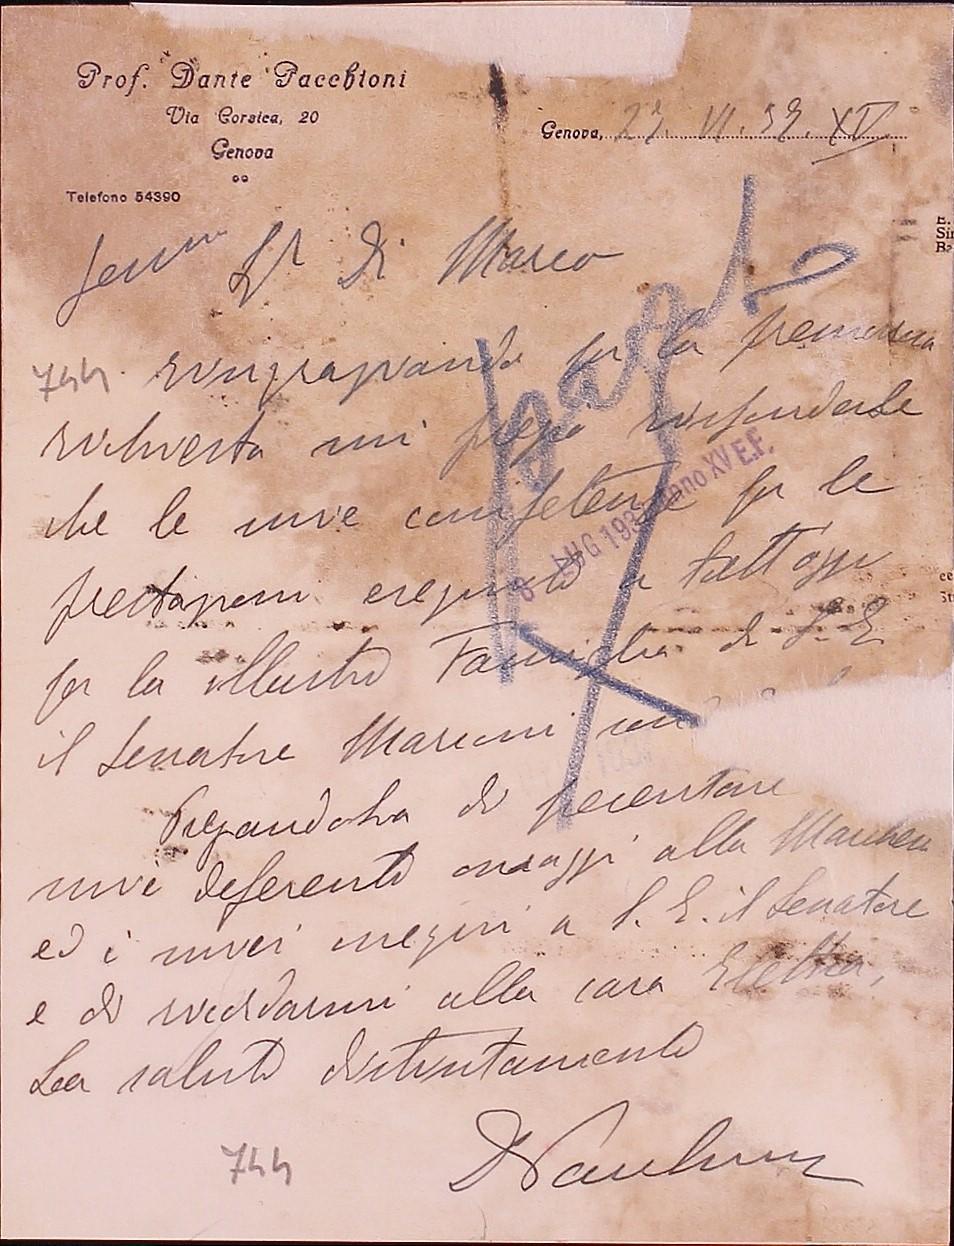 Prof. Dante Pacchioni
Via Corsica, 20
Genova
Telefono 54390
Genova, 27. VI. 37. XV
Sr Di Marco
744
ringraziando per la premurosa
richiesta mi pregio risponderle
che le mie competenze per le
prestazioni eseguite a tutt'oggi
per la illustre Famiglia di S. E.
il Senatore Marconi
Pregandola di presentare
miei deferenti omaggi alla Marchesa
ed i miei ossequi a S. E. il Senatore
e di ricordarmi alla cara Elettra,
La saluto distintamente
D Pacchioni
744
pagato
6 LUG 193 Anno XV E.F.